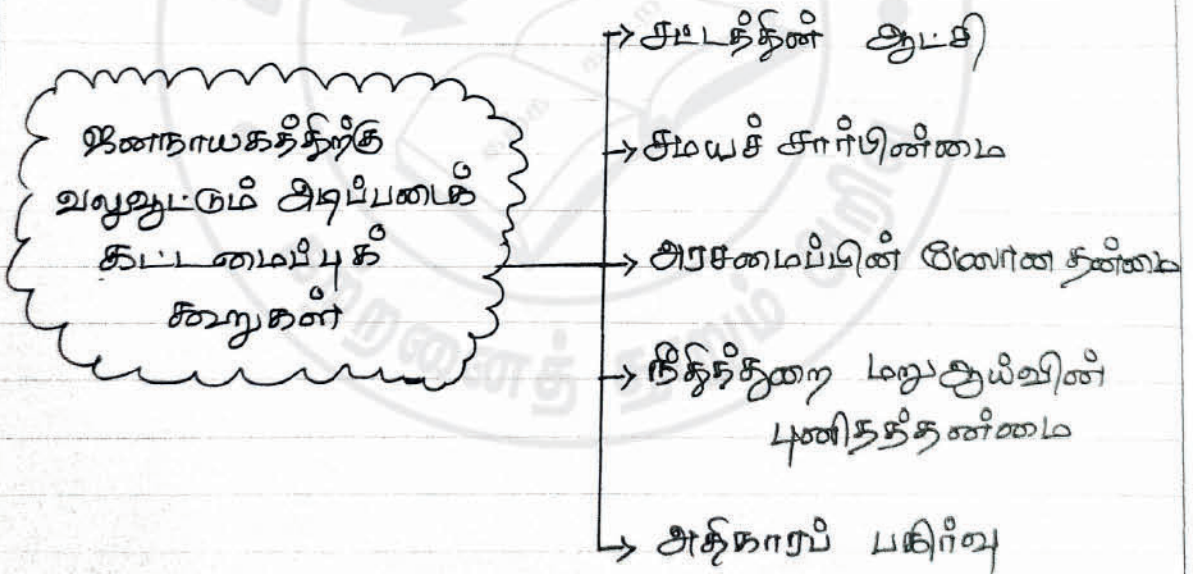 ஜனநாயகத்திற்கு
வலுவூட்டும் அடிப்படைக்
கட்டமைப்புக்
கூறுகள்
→ சட்டத்தின் ஆட்சி
→ சமயச் சார்பின்மை
→ அரசமைப்பின் மேலான தன்மை
→ நீதித்துறை மறுஆய்வின்
புனிதத்தன்மை
→ அதிகாரப் பகிர்வு